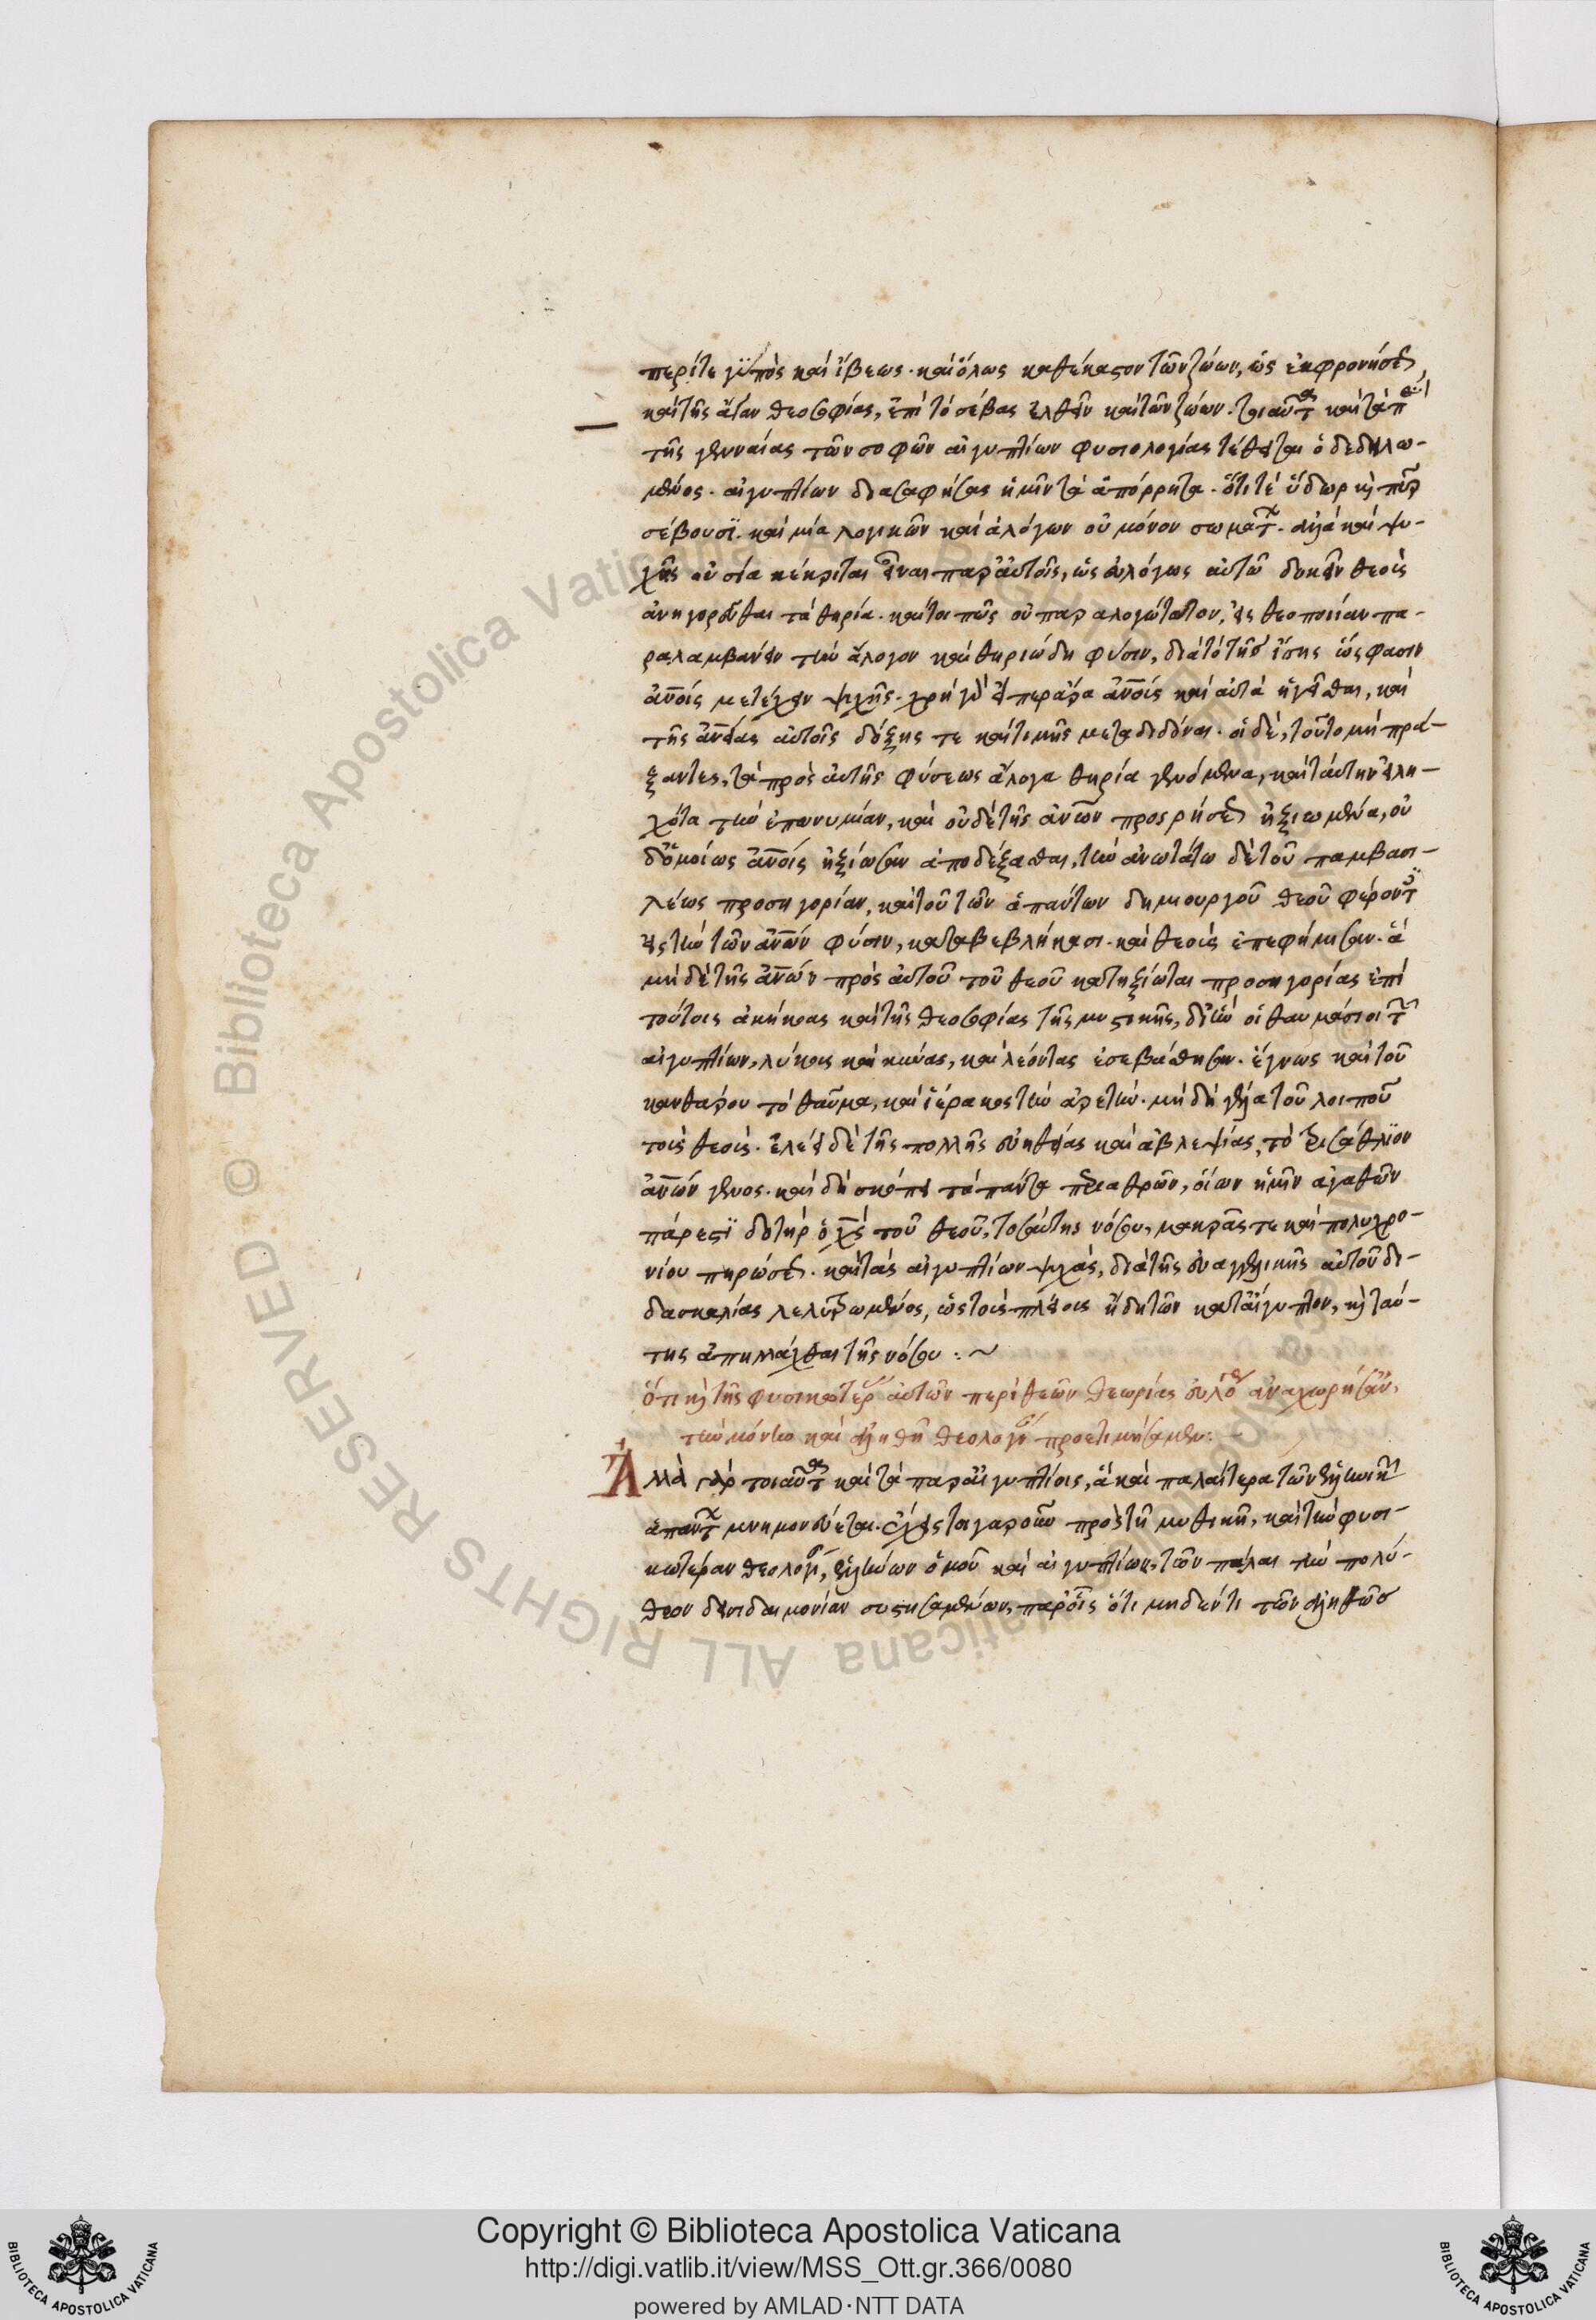 περί τε γυπὸς καὶ ἴβεως. καὶ ὅλως καθ' ἕκαστον τῶν ζώων, ὡς ἐκ φρονήσεως
καὶ τῆς ἄγαν θεοσοφίας, ἐπὶ τὸ σέβας ἐλθεῖν καὶ τῶν ζώων. τοιαῦτα καὶ τὰ περὶ
τῆς γενναίας τῶν σοφῶν αἰγυπτίων φυσιολογίας τέθειται ὁ δεδηλω-
μένος. αἰγυπτίων διασαφήσας ἡμῖν τὰ ἀπόρρητα. ὅτι τέ ὕδωρ καὶ πῦρ
σέβουσι. καὶ μία λογικῶν καὶ ἀλόγων οὐ μόνον σωμάτων. ἀλλὰ καὶ ψυ-
χῆς οὐσία κέκριται εἶναι παρ' αὐτοῖς, ὡς εὐλόγως αὐτῶν δοκεῖν θεοὺς
ἀνηγορεῦσθαι τὰ θηρία. καίτοι πῶς οὐ παραλογώτατον, εἰς θεοποιίαν πα-
ραλαμβάνειν τὴν ἄλογον καὶ θηριώδη φύσιν, διὰ τὸ τῆς ἴσης ὥς φασιν
ἀνοις μετέχειν ψυχῆς. χρῆν γὰρ εἴπερ ἄρα ἀνοις καὶ αὐτὰ ἡγεῖσθαι, καὶ
τῆς ἀνείας αὐτοῖς δόξης τε καὶ τιμῆς μεταδιδόναι. οἱ δὲ, τοῦτο μὴ πρά-
ξαντες, τὰ πρὸς αὐτῆς φύσεως ἄλογα θηρία γενόμενα, καὶ ταύτην εἰλη-
χότα τὴν ἐπωνυμίαν, καὶ οὐδὲ τῆς ἀνων προσρήσεως ἠξιωμένα, οὐ
δ' ὁμοίως ἀνοις ἠξίωσαν ἀποδέξασθαι, τὴν ἀνωτάτω δὲ τοῦ παμβασι-
λέως προσηγορίαν, καὶ τοῦ τῶν ἁπάντων δημιουργοῦ θεοῦ φέροντες
εἰς τὴν τῶν ἀνων φύσιν, καταβεβλήκασι. καὶ θεοὺς ἐπεφήμισαν. ἃ
μὴ δὲ τῆς ἀνων πρὸς αὐτοῦ τοῦ θεοῦ κατηξίωται προσηγορίας ἐπὶ
τούτοις ἀκήκοας καὶ τῆς θεοσοφίας τῆς μυστικῆς, δι' ἣν οἱ θαυμάσιοι τῶν
αἰγυπτίων, λύκους καὶ κύνας, καὶ λέοντας ἐσεβάσθησαν. ἔγνως καὶ τοῦ
κανθάρου τὸ θαῦμα, καὶ ἱέρακος τὴν ἀρετήν. μὴ δὴ γέλα τοῦ λοιποῦ
τοὺς θεούς. ἐλέει δὲ τῆς πολλῆς εὐηθείας καὶ ἀβλεψίας, τὸ τρισάθλιον
ἀνων γένος. καὶ δὴ σκόπει τὰ πάντα περιαθρῶν, οἵων ἡμῖν ἀγαθῶν
πάρεστι δοτὴρ ὁ χς τοῦ θεοῦ, τοσαύτης νόσου, μακρᾶς τε καὶ πολυχρο-
νίου πηρώσεως. καὶ τὰς αἰγυπτίων ψυχὰς, διὰ τῆς εὐαγγελικῆς αὐτοῦ δι-
δασκαλίας λελυτρωμένος, ὡς τοὺς πλείους ἤδη τῶν κατ' αἴγυπτον, καὶ ταύ-
της ἀπηλλάχθαι τῆς νόσου : ~
ὅτι καὶ τῆς φυσικωτέρας αὐτῶν περὶ θεῶν θεωρίας εὐλόγως ἀναχωρήσαντες,
τὴν μόνην καὶ ἀληθῆ θεολογίαν προετιμήσαμεν: -
Ἀλλὰ γὰρ τοιαῦτα καὶ τὰ παρ' αἰγυπτίοις, ἃ καὶ παλαίτερα τῶν ἑλληνικῶν
ἁπάντων μνημονεύεται. ἔχεις τοιγαροῦν πρὸς τῇ μυθικῇ, καὶ τὴν φυσι-
κωτέραν θεολογίαν, ἑλλήνων ὁμοῦ καὶ αἰγυπτίων, τῶν πάλαι τὴν πολύ-
θεον δεισιδαιμονίαν συστησαμένων, παρ' οἷς ὅτι μηδέν τι τῶν ἀληθῶς